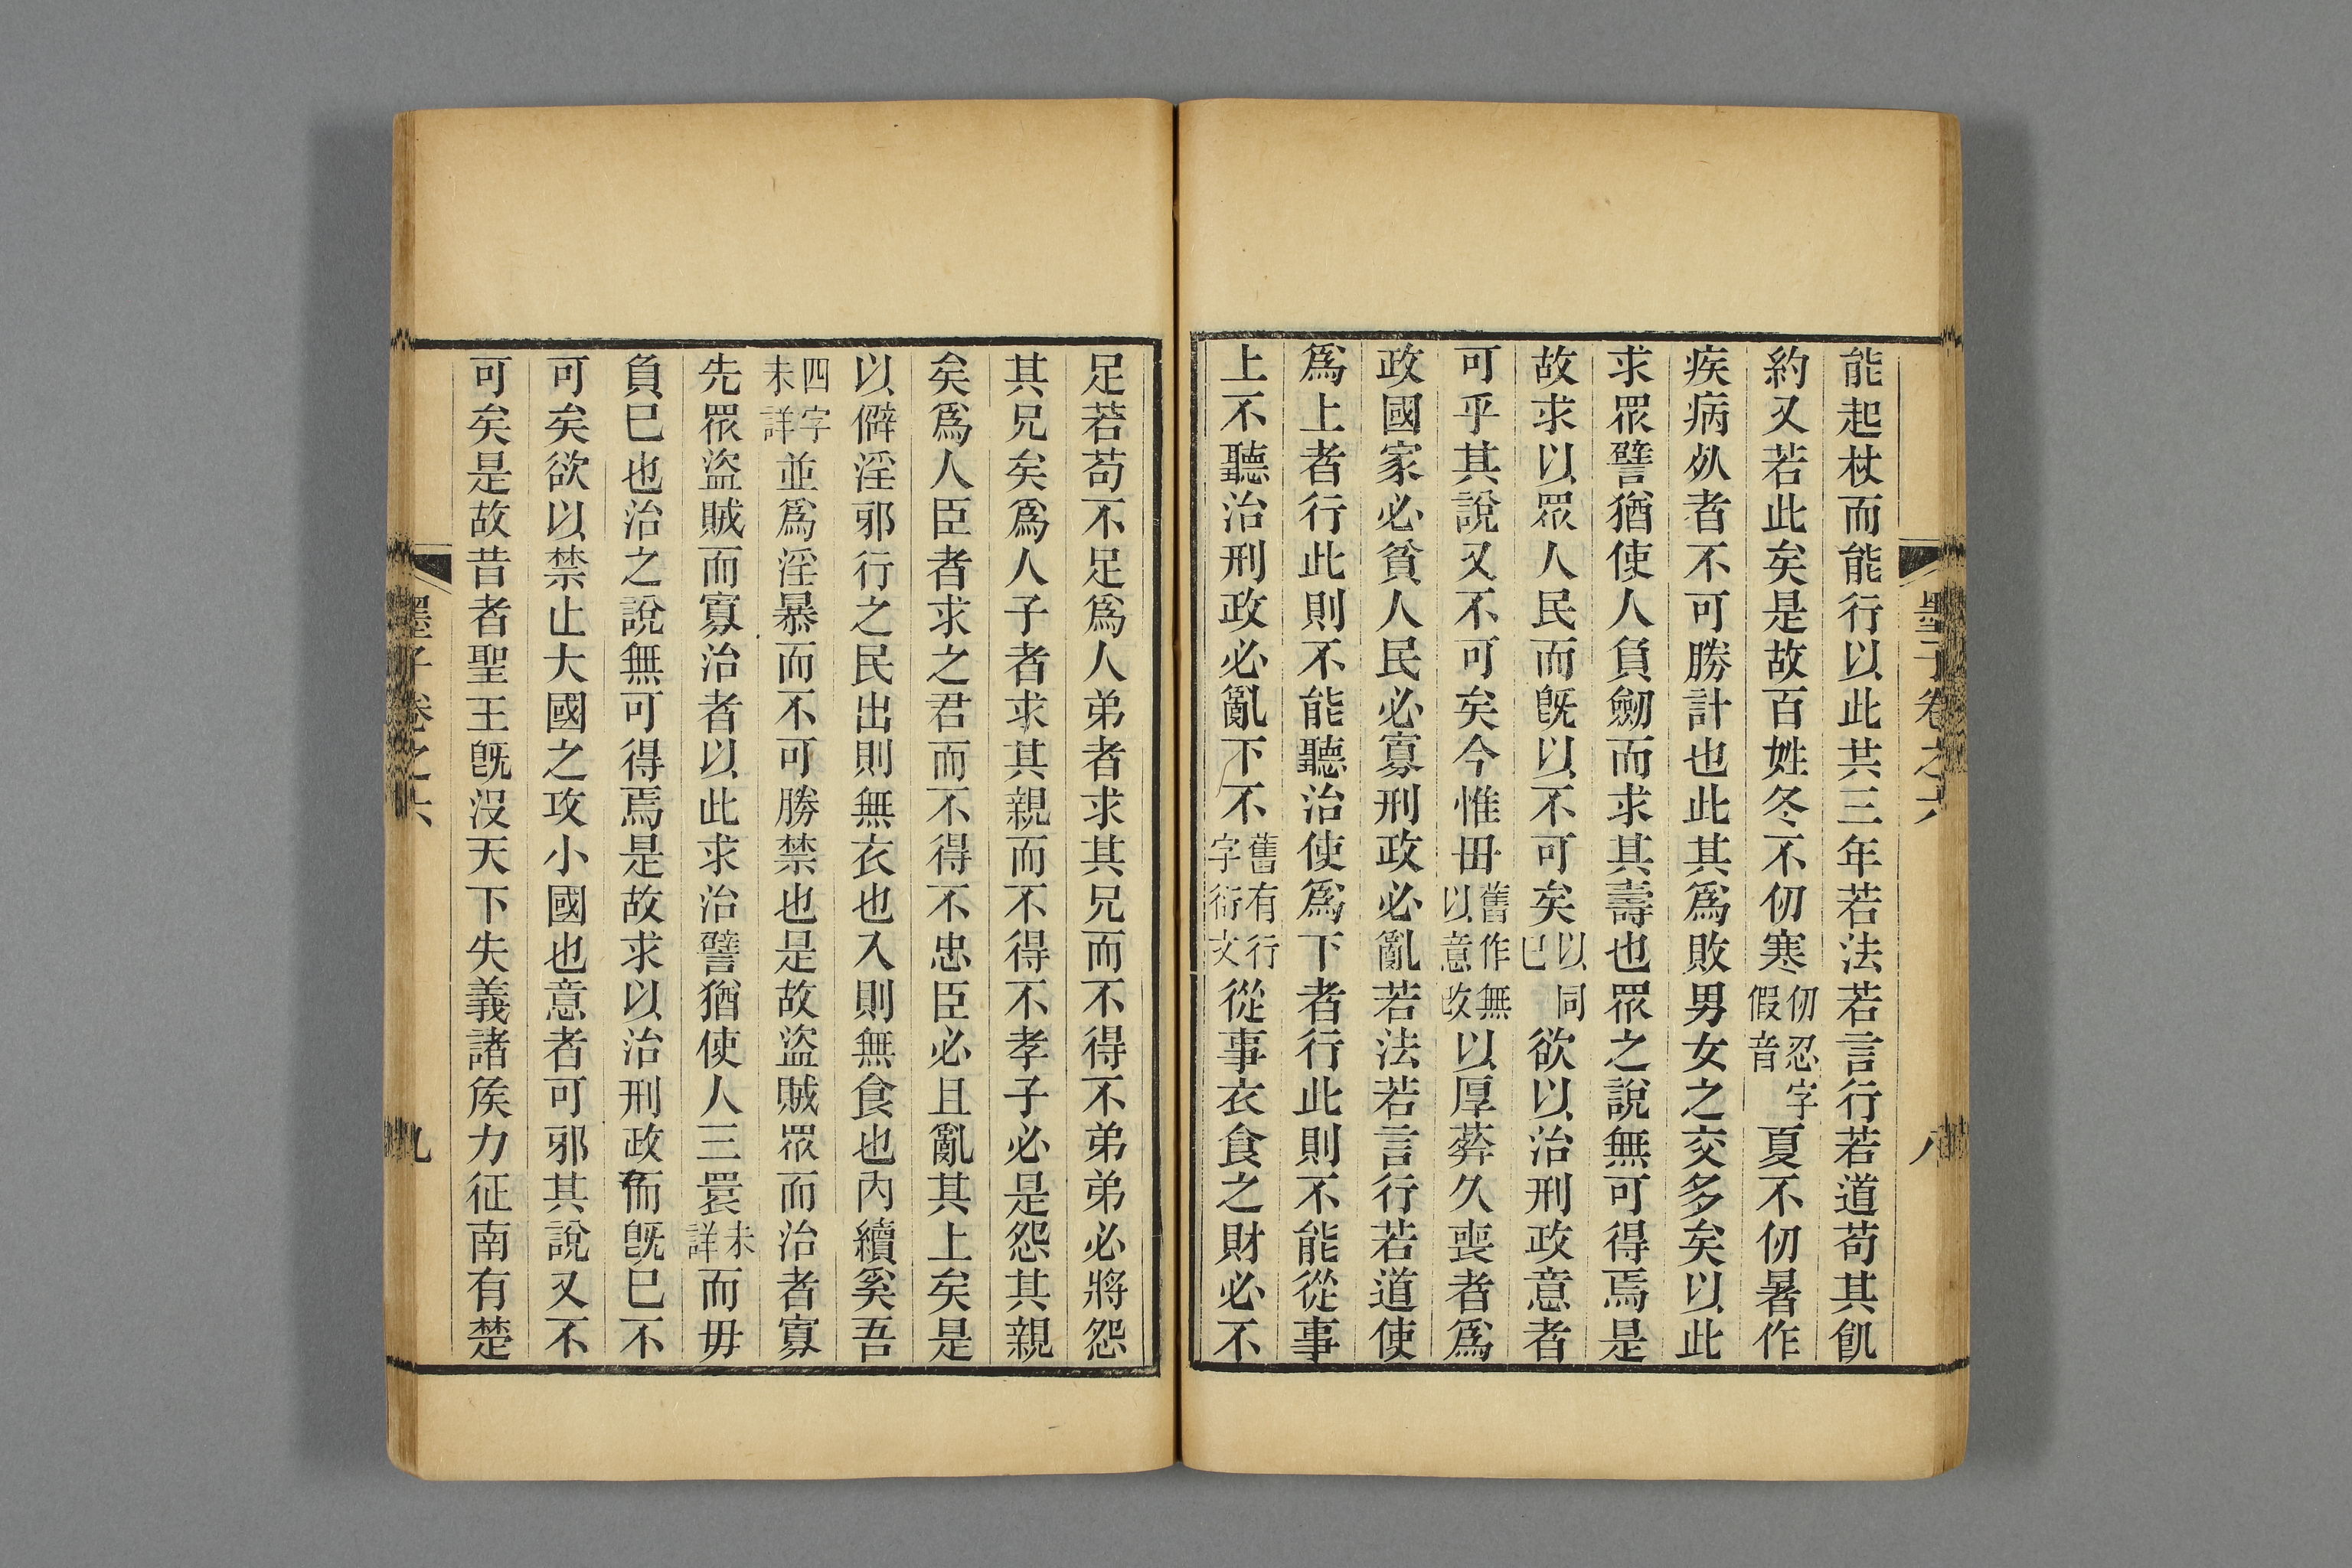 墨子卷之六
八
能起杖而能行以此共三年若法若言行若道苟其飢
約又若此矣是故百姓冬不仞寒仞忍字假音夏不仞暑作
疾病死者不可勝計也此其爲敗男女之交多矣以此
求眾譬猶使人負劒而求其壽也眾之說無可得焉是
故求以眾人民而旣以不可矣以同已欲以治刑政意者
可乎其說又不可矣今惟毋舊作無以意改以厚葬久喪者爲
政國家必貧人民必寡刑政必亂若法若言行若道使
爲上者行此則不能聽治使爲下者行此則不能從事
上不聽治刑政必亂下不舊有行字衍文從事衣食之財必不
足若苟不足爲人弟者求其兄而不得不弟弟必將怨
其兄矣爲人子者求其親而不得不孝子必是怨其親
矣爲人臣者求之君而不得不忠臣必且亂其上矣是
以僻淫邪行之民出則無衣也入則無食也內續奚吾
四字未詳並爲淫暴而不可勝禁也是故盜賊眾而治者寡
先眾盜賊而寡治者以此求治譬猶使人三睘未詳而毋
負已也治之說無可得焉是故求以治刑政而旣已不
可矣欲以禁止大國之攻小國也意者可邪其說又不
可矣是故昔者聖王旣沒天下失義諸矦力征南有楚
墨子卷之六
九